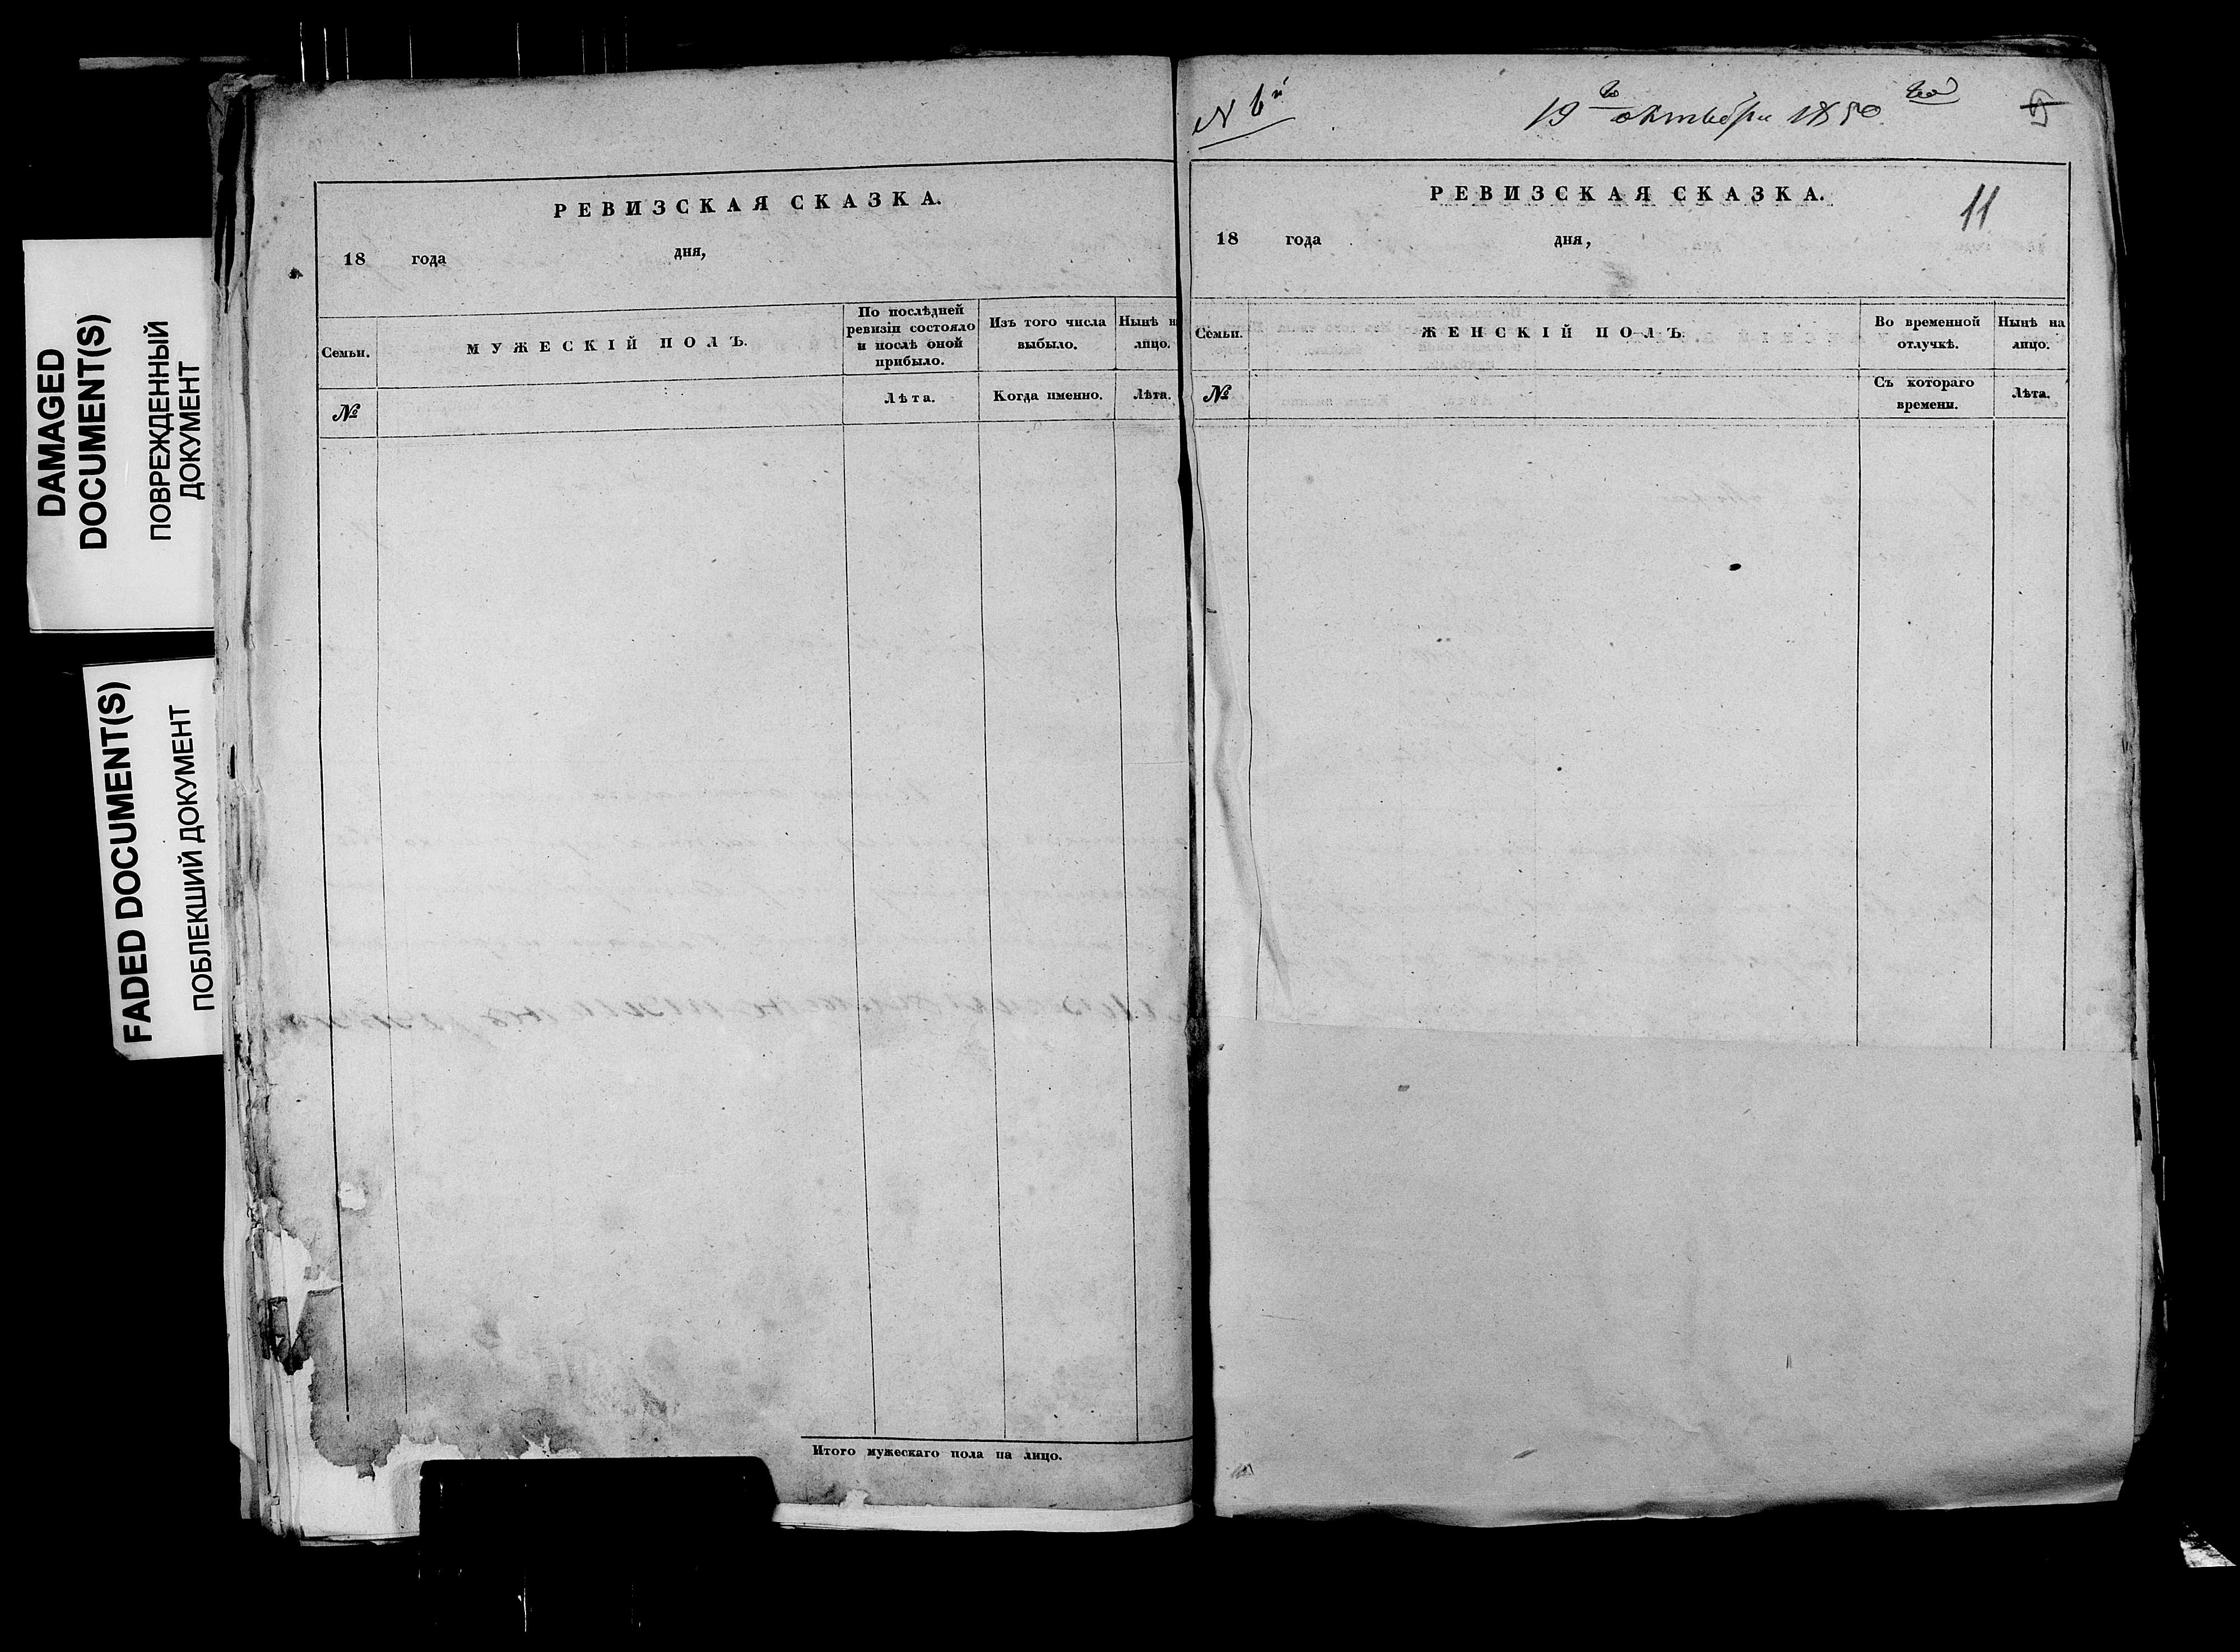 DAMAGED
DOCUMENT(S)
ПОВРЕЖДЕННЫЙ
ДОКУМЕНТ
FADED DOCUMENT(S)
ПОБЛЕКШИЙ ДОКУМЕНТ
РЕВИЗСКАЯ СКАЗКА.
18 года дня,
Семьи. МУЖЕСКІЙ ПОЛЪ. По послѣдней ревизіи состояло и послѣ оной прибыло. Изъ того числа выбыло. Нынѣ н лицо.
№ Лѣта. Когда именно. Лѣта.
Итого мужескаго пола на лицо.
N 6й
19го октября 1850 год
5
РЕВИЗСКАЯ СКАЗКА.
11
18 года дня,
Семьи. ЖЕНСКІЙ ПОЛЪ. Во временной отлучкѣ. Нынѣ на лицо.
№ Съ котораго времени. Лѣта.